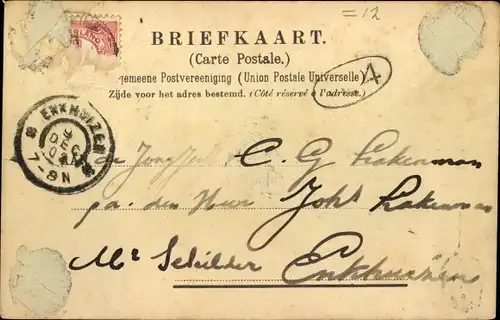 =12
BRIEFKAART.
(Carte Postale.)
gemeene Postvereeniging (Union Postale Universelle)
Zijde voor het adres bestemd. (Côté réservé à l'adresse.)
4
ENKHUIZEN
DEC
7-8N
C. G. Lakenman
Joh Lakenman
Mr Schilder
Enkhuizen